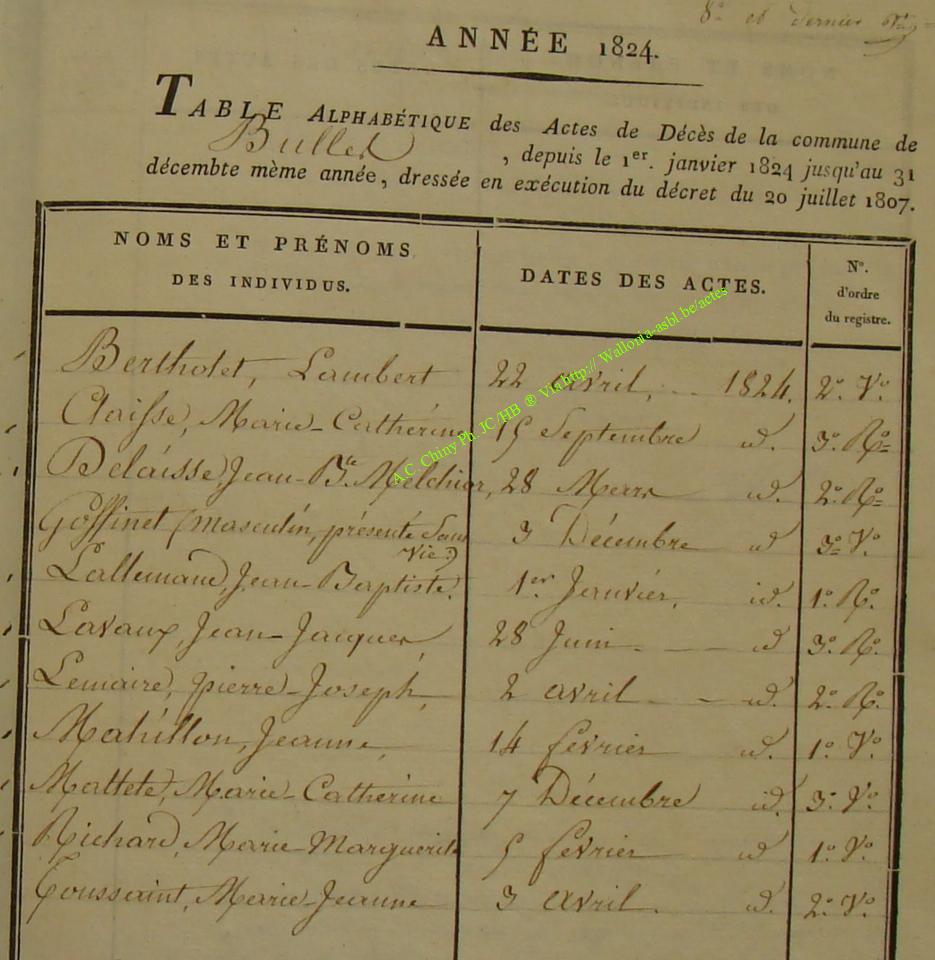 8e et dernier
ANNÉE 1824.
TABLE ALPHABÉTIQUE des Actes de Décès de la commune de
Bulles , depuis le 1er. janvier 1824 jusqu'au 31
décembte mème année, dressée en exécution du décret du 20 juillet 1807.
NOMS ET PRÉNOMS DES INDIVIDUS. DATES DES ACTES. No. d'ordre du registre.
Bertholet, Lambert 22 avril, 1824. 2o. Vo.
Claisse, Marie-Cathérine 15 Septembre id. 3o. Ro=
Delaisse, Jean-Bte. Melchior, 28 Mars id. 2o. Ro=
Goffinet (masculin, présenté Sans 3 Décembre id 3o= Vo.
Vie)
Lallemand, Jean-Baptiste. 1er Janvier, id. 1o. Ro.
Lavaux, Jean-Jacques, 28 Juin - - id 3o. Ro.
Lemaire, pierre-Joseph, 2 avril - - id. 2o. Ro.
Mahillon, Jeanne, 14 février id. 1o. Vo.
Mattete, Marie-Cathérine 7 Décembre id. 3o. Vo.
Richard, Marie-Marguerite 5 février id 1o. Vo.
Toussaint, Marie-Jeanne 3 avril. id. 2o. Vo.
A.C. Chiny Ph. JC/HB ® Via http:// Wallonia-asbl.be/actes